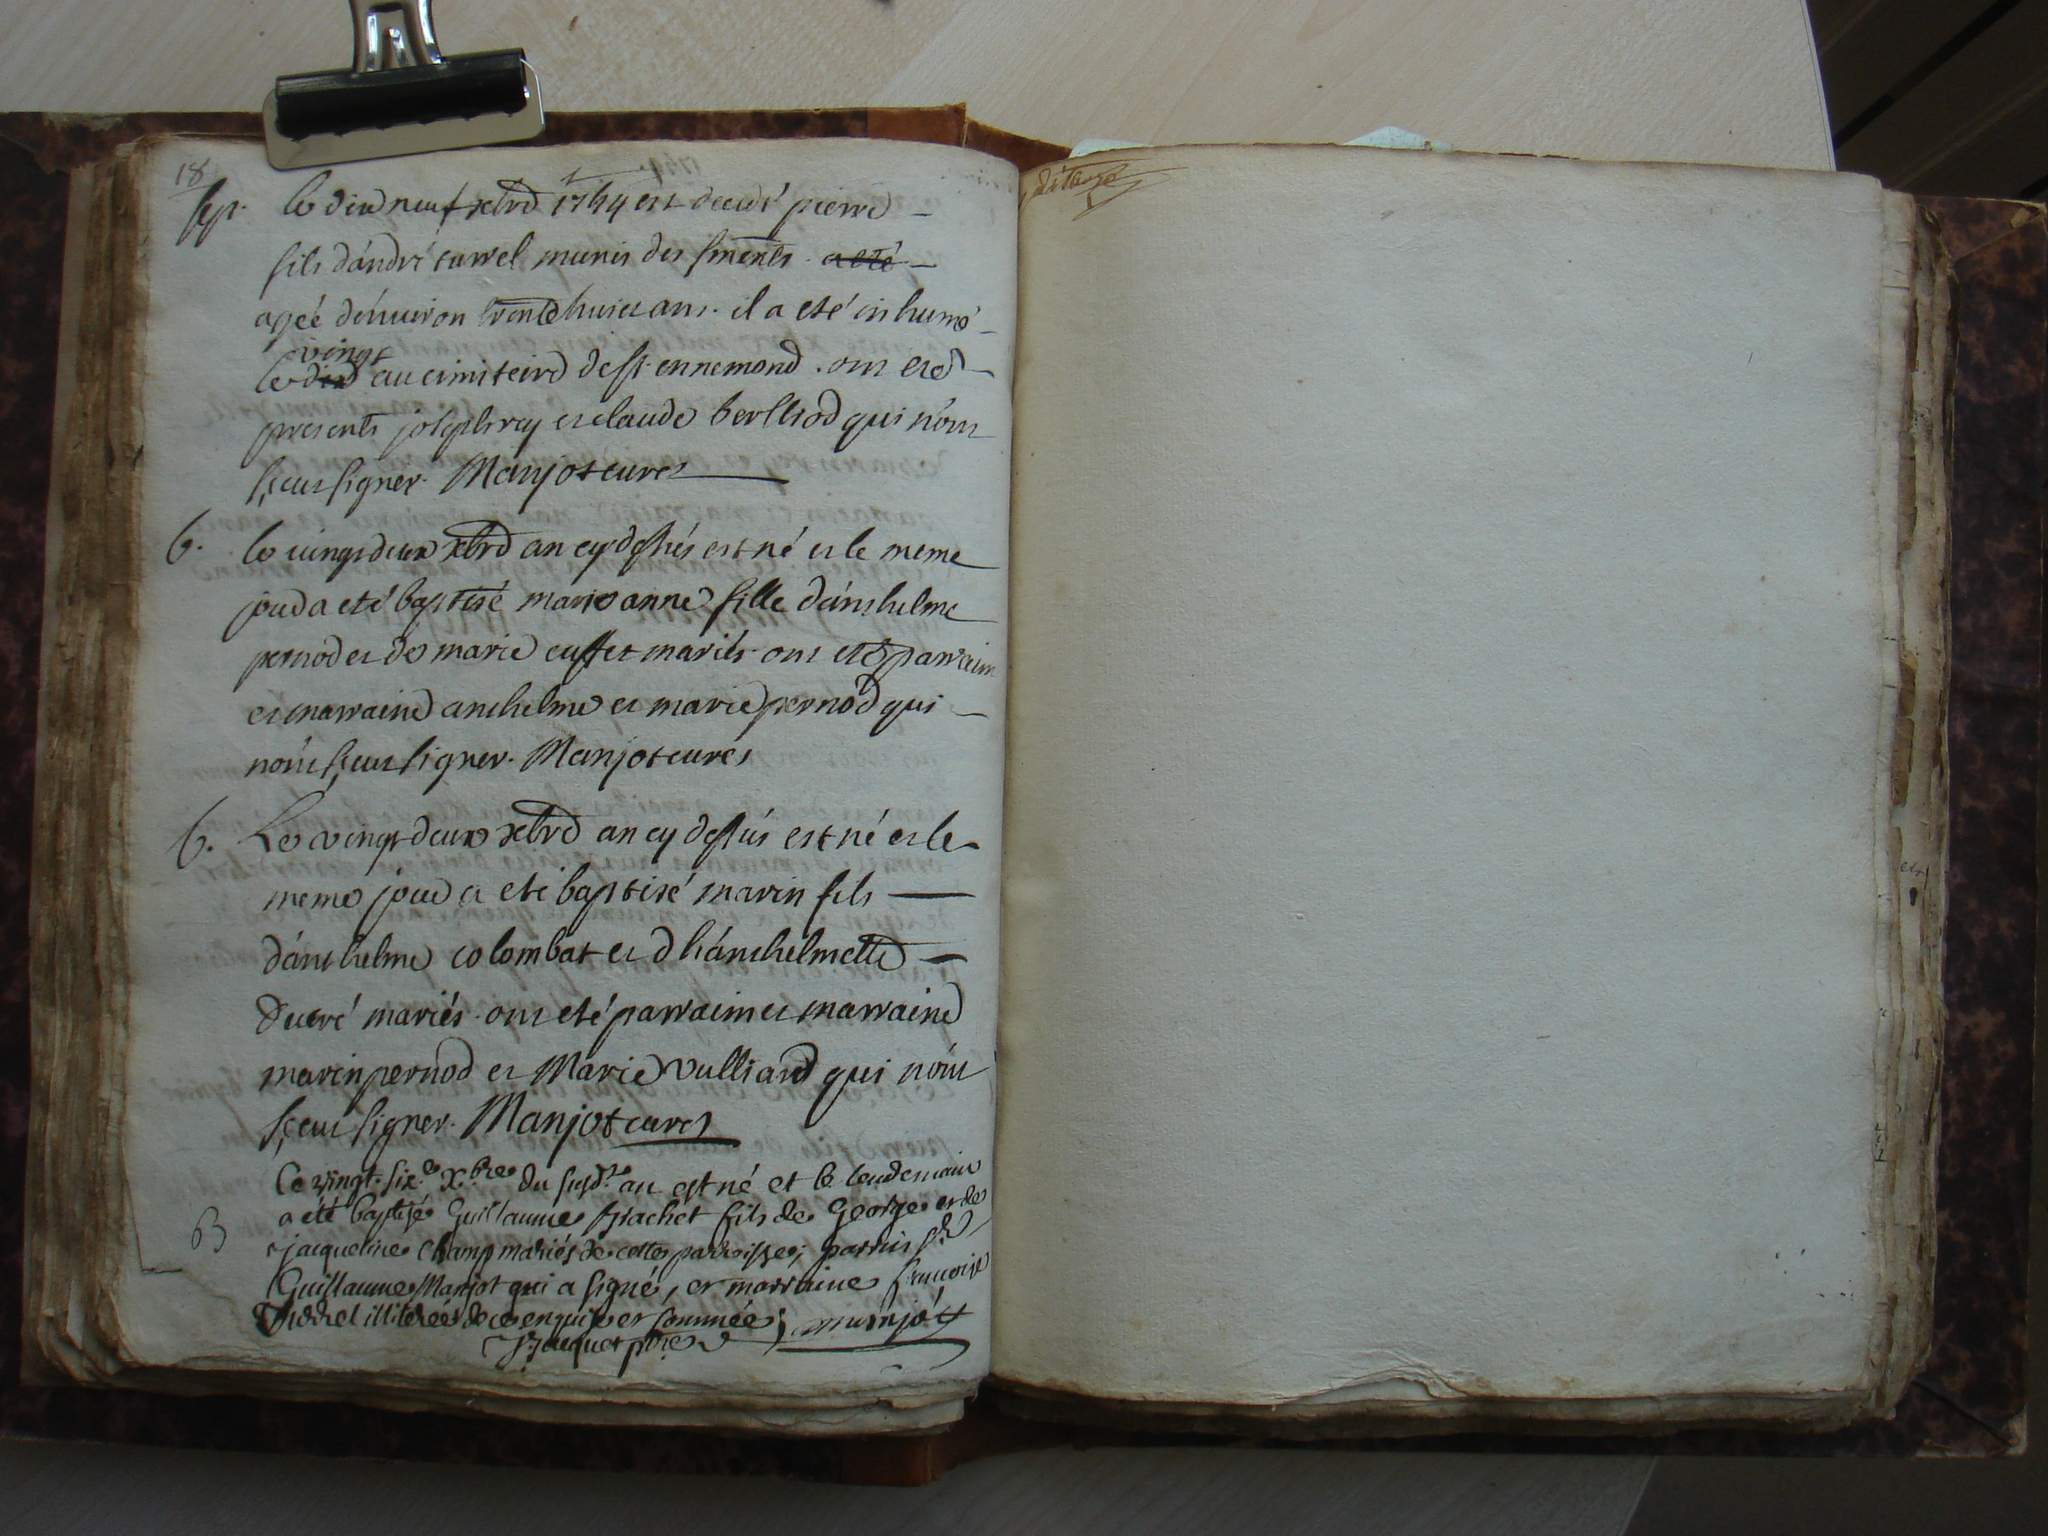 18
sep. le dix neuf xbre 1744 est decedé pierre
fils d'andré turrel munis des sments. a eté
agée d'environ trente huict ans. il a eté inhumé
vingt
le dix au cimiteire de st ennemond. ont eté
presents joseph rey et claude berlliod qui n'ont
sceu signer. Manjot curés
b. le vingt deux xbre an cy dessus est né et le meme
jour a eté baptisé marie anne fille d'anthelme
pernod et de marie cusset mariés ont eté parrain
et marraine anthelme et marie pernod qui
n'ont sceu signer. Manjot curés
b. Le vingt deux xbre an cy dessus est né et le
meme jour a eté baptisé marin fils
d'anthelme colombat et d'hanthelmette
ducré mariés ont eté parrain et marraine
marin pernod et Marie vulliard qui n'ont
sceu signer. Manjot curés
B Le vingt six.e X.bre du susd.t an est né et le lendemain
a été baptisé Guillaume Brachet fils de George et de
jacqueline Champ mariés de cette parroisse; parrin s.r
Guillaume Manjot qui a signé, et marraine francoise
illiterée de ce enquise et sommée; manjot
Jacquet ptre